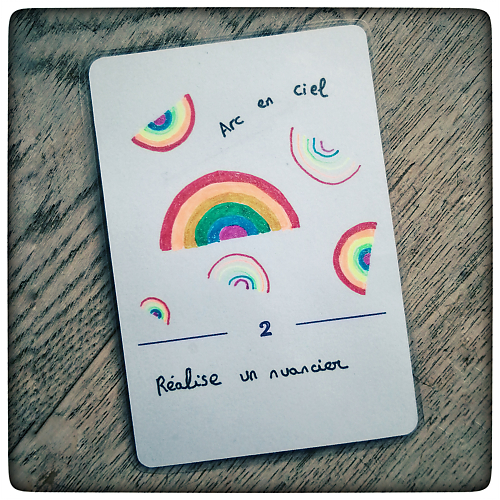 Arc en ciel
2
Réalise un nuancier